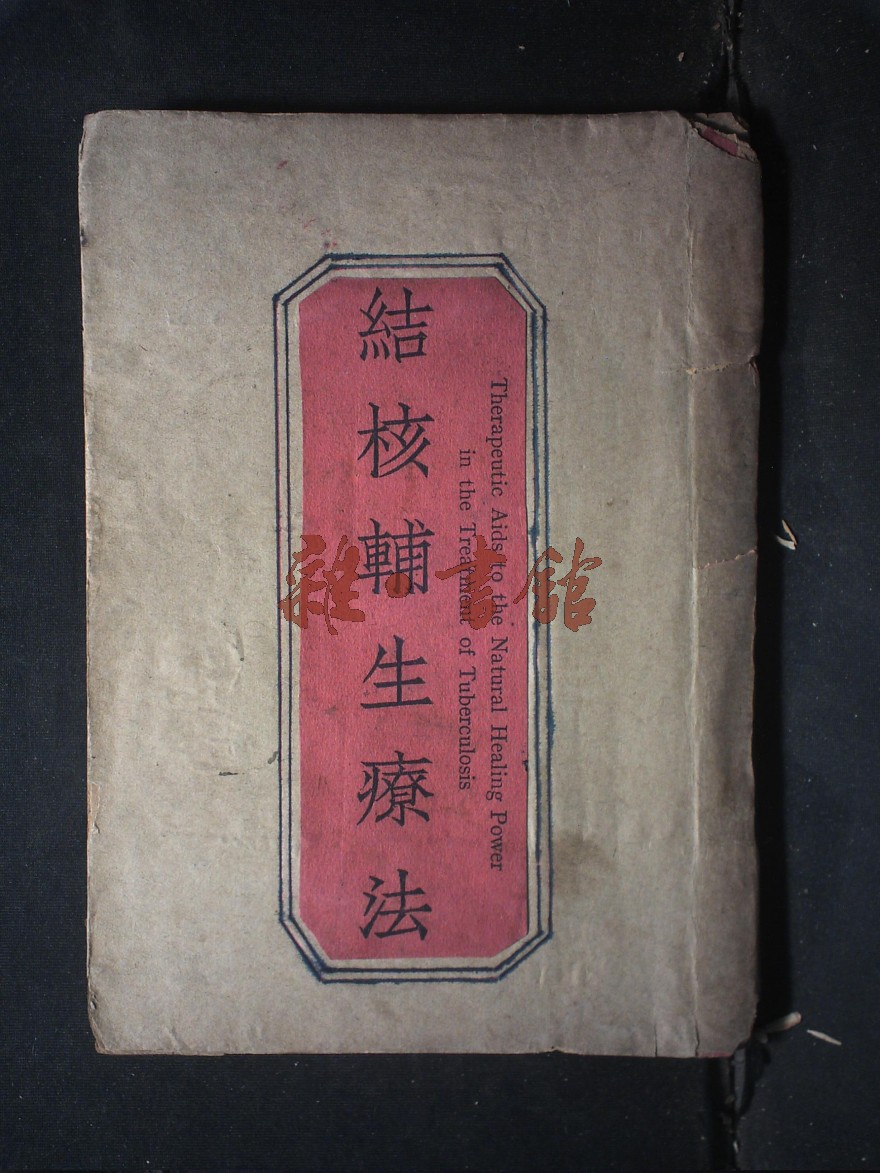 Therapeutic Aids to the Natural Healing Power
in the Treatment of Tuberculosis
結核輔生療法
雜·書館